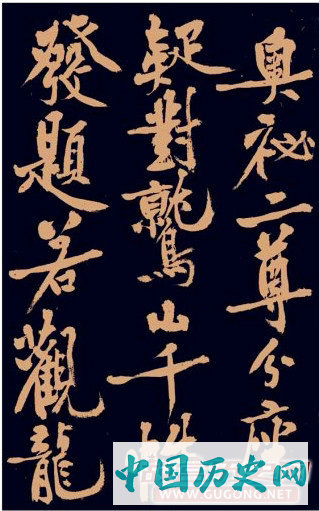 奥祕二尊分座
疑對鷲山千
發題若觀龍
中国历史网
WWW.GUGONG.NET